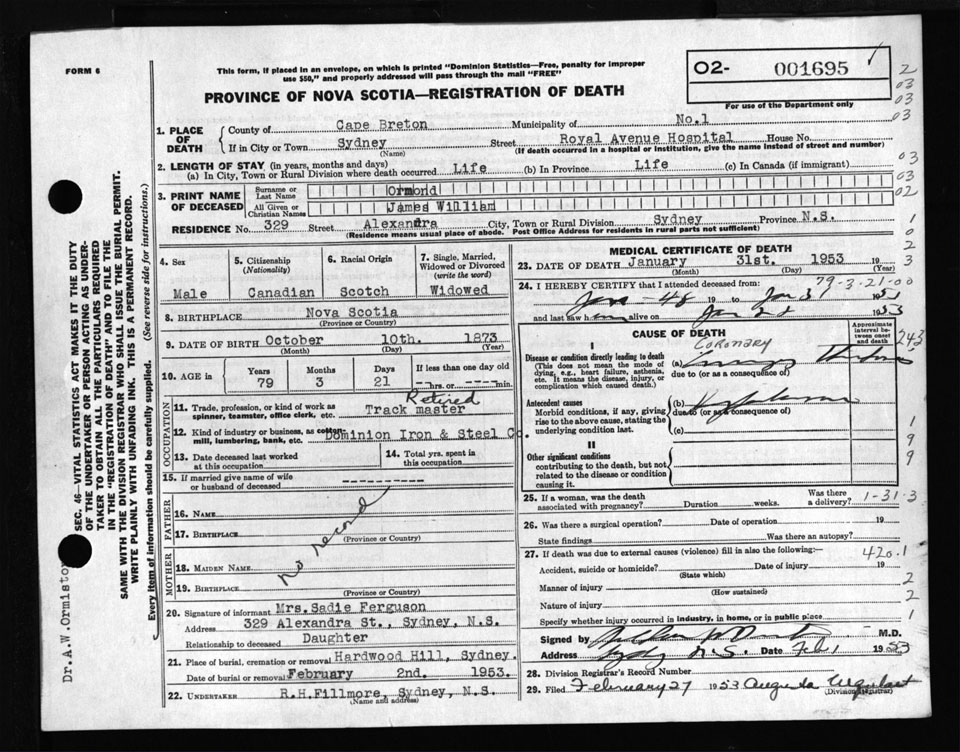 FORM 6
This form, if placed in an envelope, on which is printed "Dominion Statistics—Free, penalty for improper
use $50," and properly addressed will pass through the mail "FREE"
O2- 001695
For use of the Department only
PROVINCE OF NOVA SCOTIA—REGISTRATION OF DEATH
1. PLACE OF DEATH { County of Cape Breton Municipality of No.1
If in City or Town Sydney Street Royal Avenue Hospital House No.
(Name) (If death occurred in a hospital or institution, give the name instead of street and number)
2. LENGTH OF STAY (in years, months and days)
(a) In City, Town or Rural Division where death occurred Life (b) In Province Life (c) In Canada (if immigrant)
3. PRINT NAME OF DECEASED { Surname or Last Name Ormond
All Given or Christian Names James William
RESIDENCE No. 329 Street Alexandra City, Town or Rural Division Sydney Province N.S.
(Residence means usual place of abode. Post Office Address for residents in rural parts not sufficient)
2
03
03
03
03
03
02
1
0
2
3
4. Sex
Male
5. Citizenship
(Nationality)
Canadian
6. Racial Origin
Scotch
7. Single, Married,
Widowed or Divorced
(write the word)
Widowed
8. BIRTHPLACE Nova Scotia
(Province or Country)
9. DATE OF BIRTH October 10th. 1873
(Month) (Day) (Year)
10. AGE in { Years Months Days If less than one day old
79 3 21 hrs. or min.
OCCUPATION
11. Trade, profession, or kind of work as
spinner, teamster, office clerk, etc. Retired Track master
12. Kind of industry or business, as cotton-
mill, lumbering, bank, etc. Dominion Iron & Steel Co.
13. Date deceased last worked
at this occupation
14. Total yrs. spent in
this occupation
15. If married give name of wife
or husband of deceased ----------
FATHER
16. NAME
17. BIRTHPLACE
(Province or Country)
No record
MOTHER
18. MAIDEN NAME
19. BIRTHPLACE
(Province or Country)
20. Signature of informant Mrs. Sadie Ferguson
Address 329 Alexandra St., Sydney, N.S.
Relationship to deceased Daughter
21. Place of burial, cremation or removal Hardwood Hill, Sydney.
Date of burial or removal February 2nd. 1953.
22. UNDERTAKER R.H.Fillmore, Sydney, N.S.
(Name and address)
MEDICAL CERTIFICATE OF DEATH
23. DATE OF DEATH January 31st. 1953 19
(Month) (Day) (Year)
79-3-21-00
24. I HEREBY CERTIFY that I attended deceased from:
Jan - 48 19 to Jan 31 1953
and last saw h im alive on Jan 1953
CAUSE OF DEATH
Approximate interval between onset and death
243
I
Disease or condition directly leading to death
(This does not mean the mode of
dying, e.g., heart failure, asthenia,
etc. It means the disease, injury, or
complication which caused death.)
CORONARY
(a) Coronary
due to (or as a consequence of)
Antecedent causes
Morbid conditions, if any, giving
rise to the above cause, stating the
underlying condition last.
(b)
due to (or as a consequence of)
(c)
II
Other significant conditions
contributing to the death, but not
related to the disease or condition
causing it.
1
9
9
25. If a woman, was the death
associated with pregnancy? Duration weeks. Was there
a delivery?
1-31-3
26. Was there a surgical operation? Date of operation 19
State findings Was there an autopsy?
27. If death was due to external causes (violence) fill in also the following:—
420.1
Accident, suicide or homicide? Date of injury 19
(State which)
Manner of injury 2
(How sustained)
Nature of injury 2
Specify whether injury occurred in industry, in home, or in public place 1
Signed by M.D.
Address Sydney N.S. Date Feb 1 1953
28. Division Registrar's Record Number
29. Filed February 27 1953 Augusta Urquhart
(Division Registrar)
SEC. 46—VITAL STATISTICS ACT MAKES IT THE DUTY
OF THE UNDERTAKER OR PERSON ACTING AS UNDER-
TAKER TO OBTAIN ALL THE PARTICULARS REQUIRED
IN THE "REGISTRATION OF DEATH" AND TO FILE THE
SAME WITH THE DIVISION REGISTRAR WHO SHALL ISSUE THE BURIAL PERMIT.
WRITE PLAINLY WITH UNFADING INK. THIS IS A PERMANENT RECORD.
Every item of information should be carefully supplied. (See reverse side for instructions.)
Dr.A.W.Ormiston